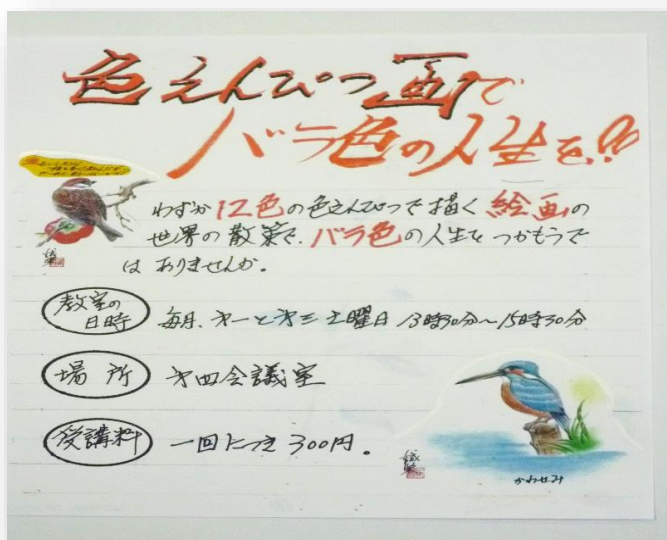 色えんぴつ画で
バラ色の人生を!!
わずか12色の色えんぴつで描く絵画の
世界の散策で、バラ色の人生をつかもうで
はありませんか。
教室の
日時
毎月、才一と才三土曜日 13時30分~15時30分
場所
才四会議室
受講料
一回につき300円。
かわせみ